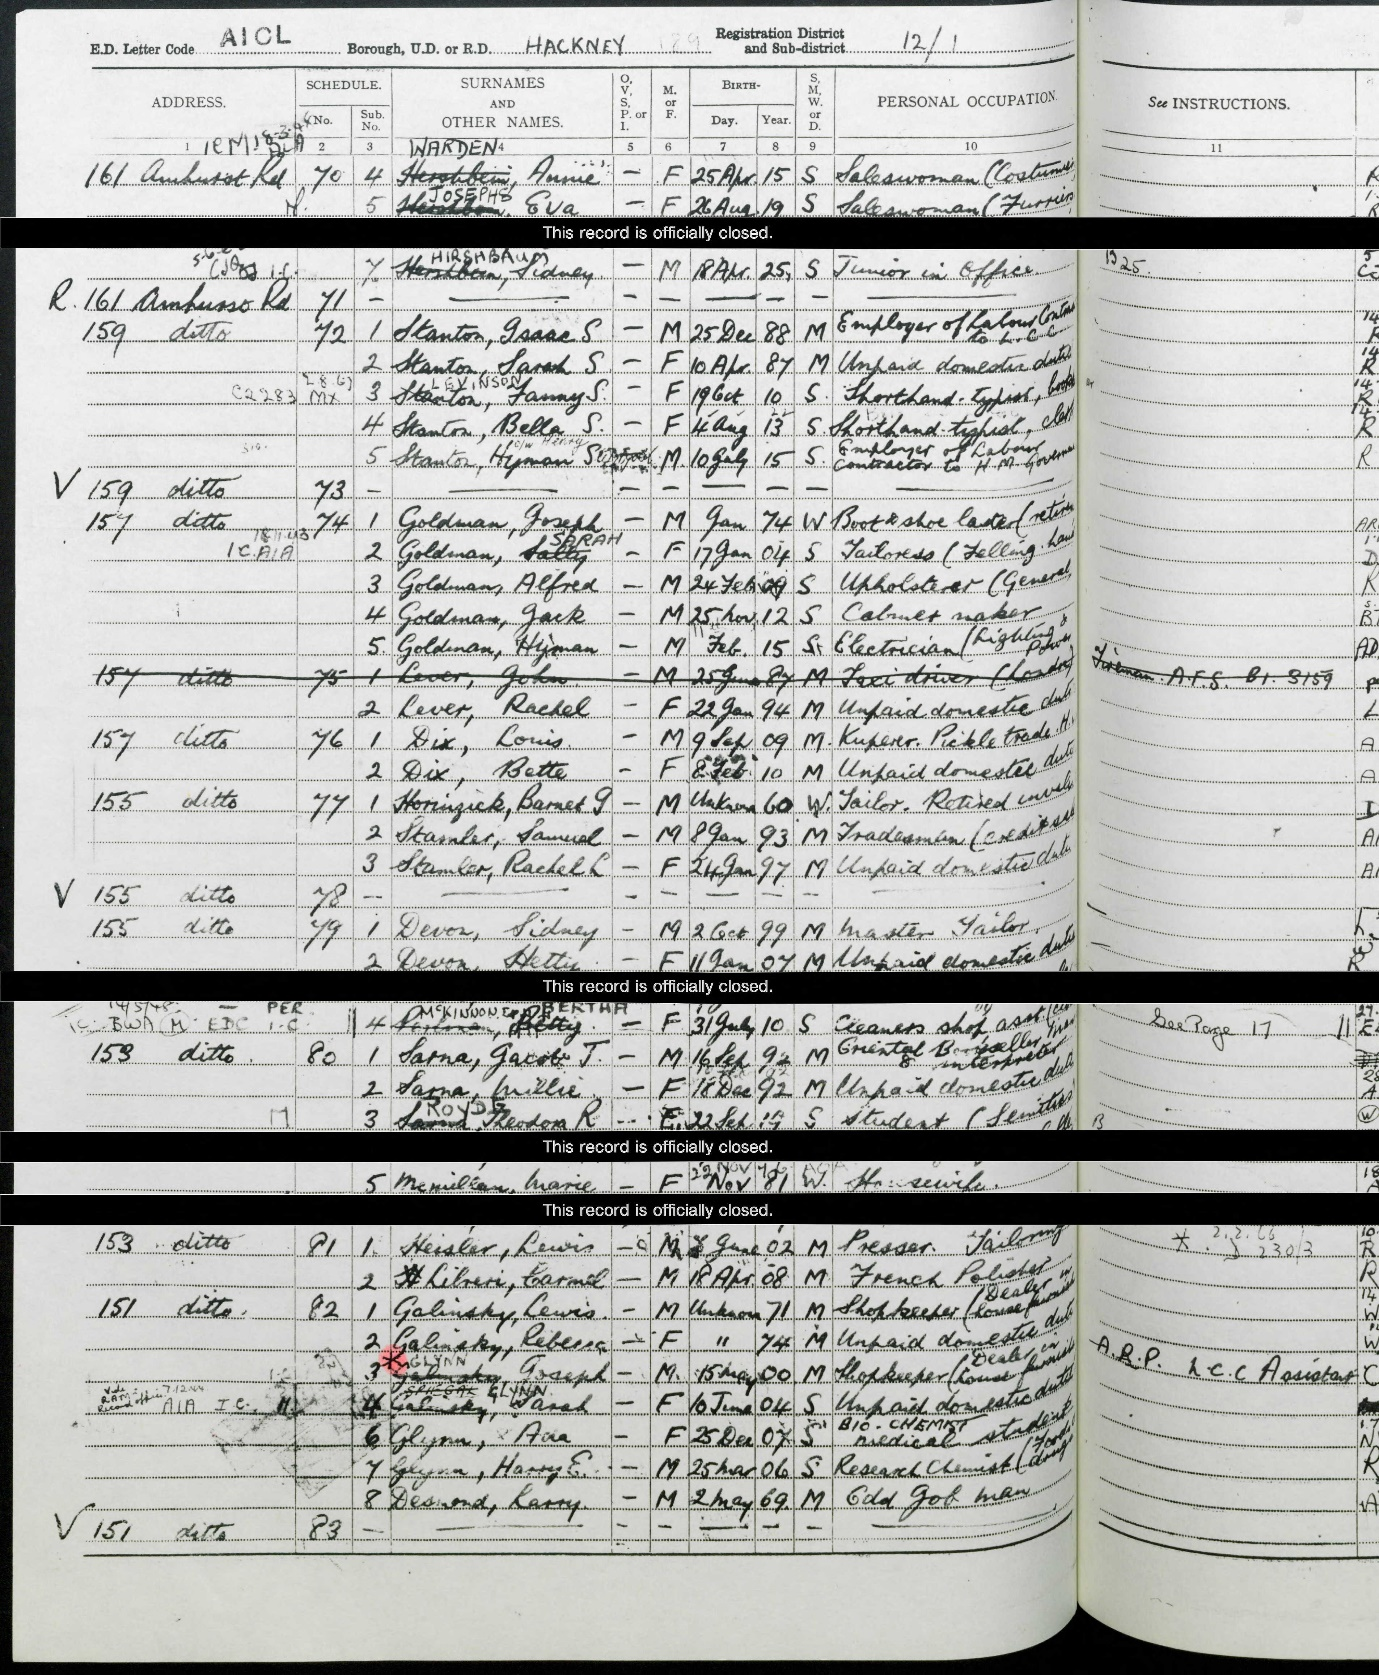 E.D. Letter Code AICL Borough, U.D. or R.D. HACKNEY 189 Registration District and Sub-district 12/1
ADDRESS. SCHEDULE. No. Sub. No. SURNAMES AND OTHER NAMES. O, V, S, P. or I. M. or F. BIRTH- Day. Year. S, M, W. or D. PERSONAL OCCUPATION. See INSTRUCTIONS.
1 2 3 4 5 6 7 8 9 10 11
WARDEN
161 Amhurst Rd 70 4 Hershbein, Annie – F 25 Apr. 15 S Saleswoman (Costumes
JOSEPHS
5 Hershbein, Eva – F 26 Aug. 19 S Saleswoman (Furriers
This record is officially closed.
HIRSHBAUM
7 Hershbein, Sidney – M 18 Apr. 25 S Junior in Office.
R. 161 Amhurst Rd 71 –
159 ditto 72 1 Stanton, Isaac S – M 25 Dec 88 M Employer of Labour Contra to L.C.C
2 Stanton, Sarah S – F 10 Apr. 87 M Unpaid domestic duti
LEVINSON
C2283 MX 3 Stanton, Fanny S. – F 19 Oct 10 S. Shorthand-typist, book
4 Stanton, Bella S. – F 4 Aug 13 S. Shorthand-typist, cler
o/w Henry
5 Stanton, Hyman S – M. 10 July 15 S. Employer of Labour Contractor to H.M. Governm
V 159 ditto 73 –
157 ditto 74 1 Goldman, Joseph – M Jan 74 W Boot & shoe laster (retire
SARAH
I C. AIA 2 Goldman, Salty – F 17 Jan 04 S Tailoress (Felling hand
3 Goldman, Alfred – M 24 Feb 09 S Upholsterer (General
4 Goldman, Jack – M 25 Nov 12 S Cabinet maker
5. Goldman, Hyman – M Feb. 15 S. Electrician (Lighting & Power
157 ditto 75 1 Lever, John – M 25 June 87 M Taxi driver (London) Fireman A.F.S. B1. S159
2 Lever, Rachel – F 22 Jan 94 M Unpaid domestic duti
157 ditto 76 1 Dix, Louis. – M 9 Sep 09 M. Kuperer. Pickle trade. H.
2 Dix, Bette – F 8 Feb 10 M Unpaid domestic duti
155 ditto 77 1 Horinzick, Barnet G – M Unknown 60 W. Tailor. Retired invali
2 Stamler, Samuel – M 8 Jan 93 M Tradesman (credit
3 Stamler, Rachel L – F 24 Jan 97 M Unpaid domestic duti
V 155 ditto 78 –
155 ditto 79 1 Devon, Sidney – M 2 Oct 99 M Master Tailor.
2 Devon, Hettie – F 11 Jan 07 M Unpaid domestic duti
This record is officially closed.
PER McKINNON BERTHA
BWA M EDC I.C 4 Betty. – F 31 July 10 S Cleaners shop asst See Page 17
153 ditto. 80 1 Sarna, Jacob T. – M 16 Sep 92 M Oriental Bookseller & interpreter
2 Sarna, Millie – F 18 Dec 92 M Unpaid domestic duti
ROYDE
M 3 Sarna, Theodora R – F. 22 Sep 19 S Student (Semitics
This record is officially closed.
22 Nov
5 Memillan, Marie – F Nov 81 W. Housewife.
This record is officially closed.
153 ditto 81 1. Heisler, Lewis – M 8 June 02 M Presser. Tailoring 2.2.66 230/3
2 Libreri, Carmel – M 18 Apr. 08 M French Polisher
151 ditto. 82 1 Galinsky, Lewis. – M Unknown 71 M Shopkeeper (Dealer in house furnish
2 Galinsky, Rebecca – F " 74 M Unpaid domestic duti
GLYNN
3 Galinsky Joseph – M. 15 May 00 M Shopkeeper (Dealer in house furnish A.R.P. L.C.C Assistant
SPIEGAL GLYNN
AIA I.C. 4 Galinsky, Sarah – F 10 June 04 S Unpaid domestic duties
BIO-CHEMIST
6 Glynn, Ada – F 25 Dec 07 S medical student
7 Glynn, Harry E. – M 25 Mar 06 S Research Chemist (Food & drugs
8 Desmond, Larry. – M 2 May 69. M Odd Job man
V 151 ditto 83 –